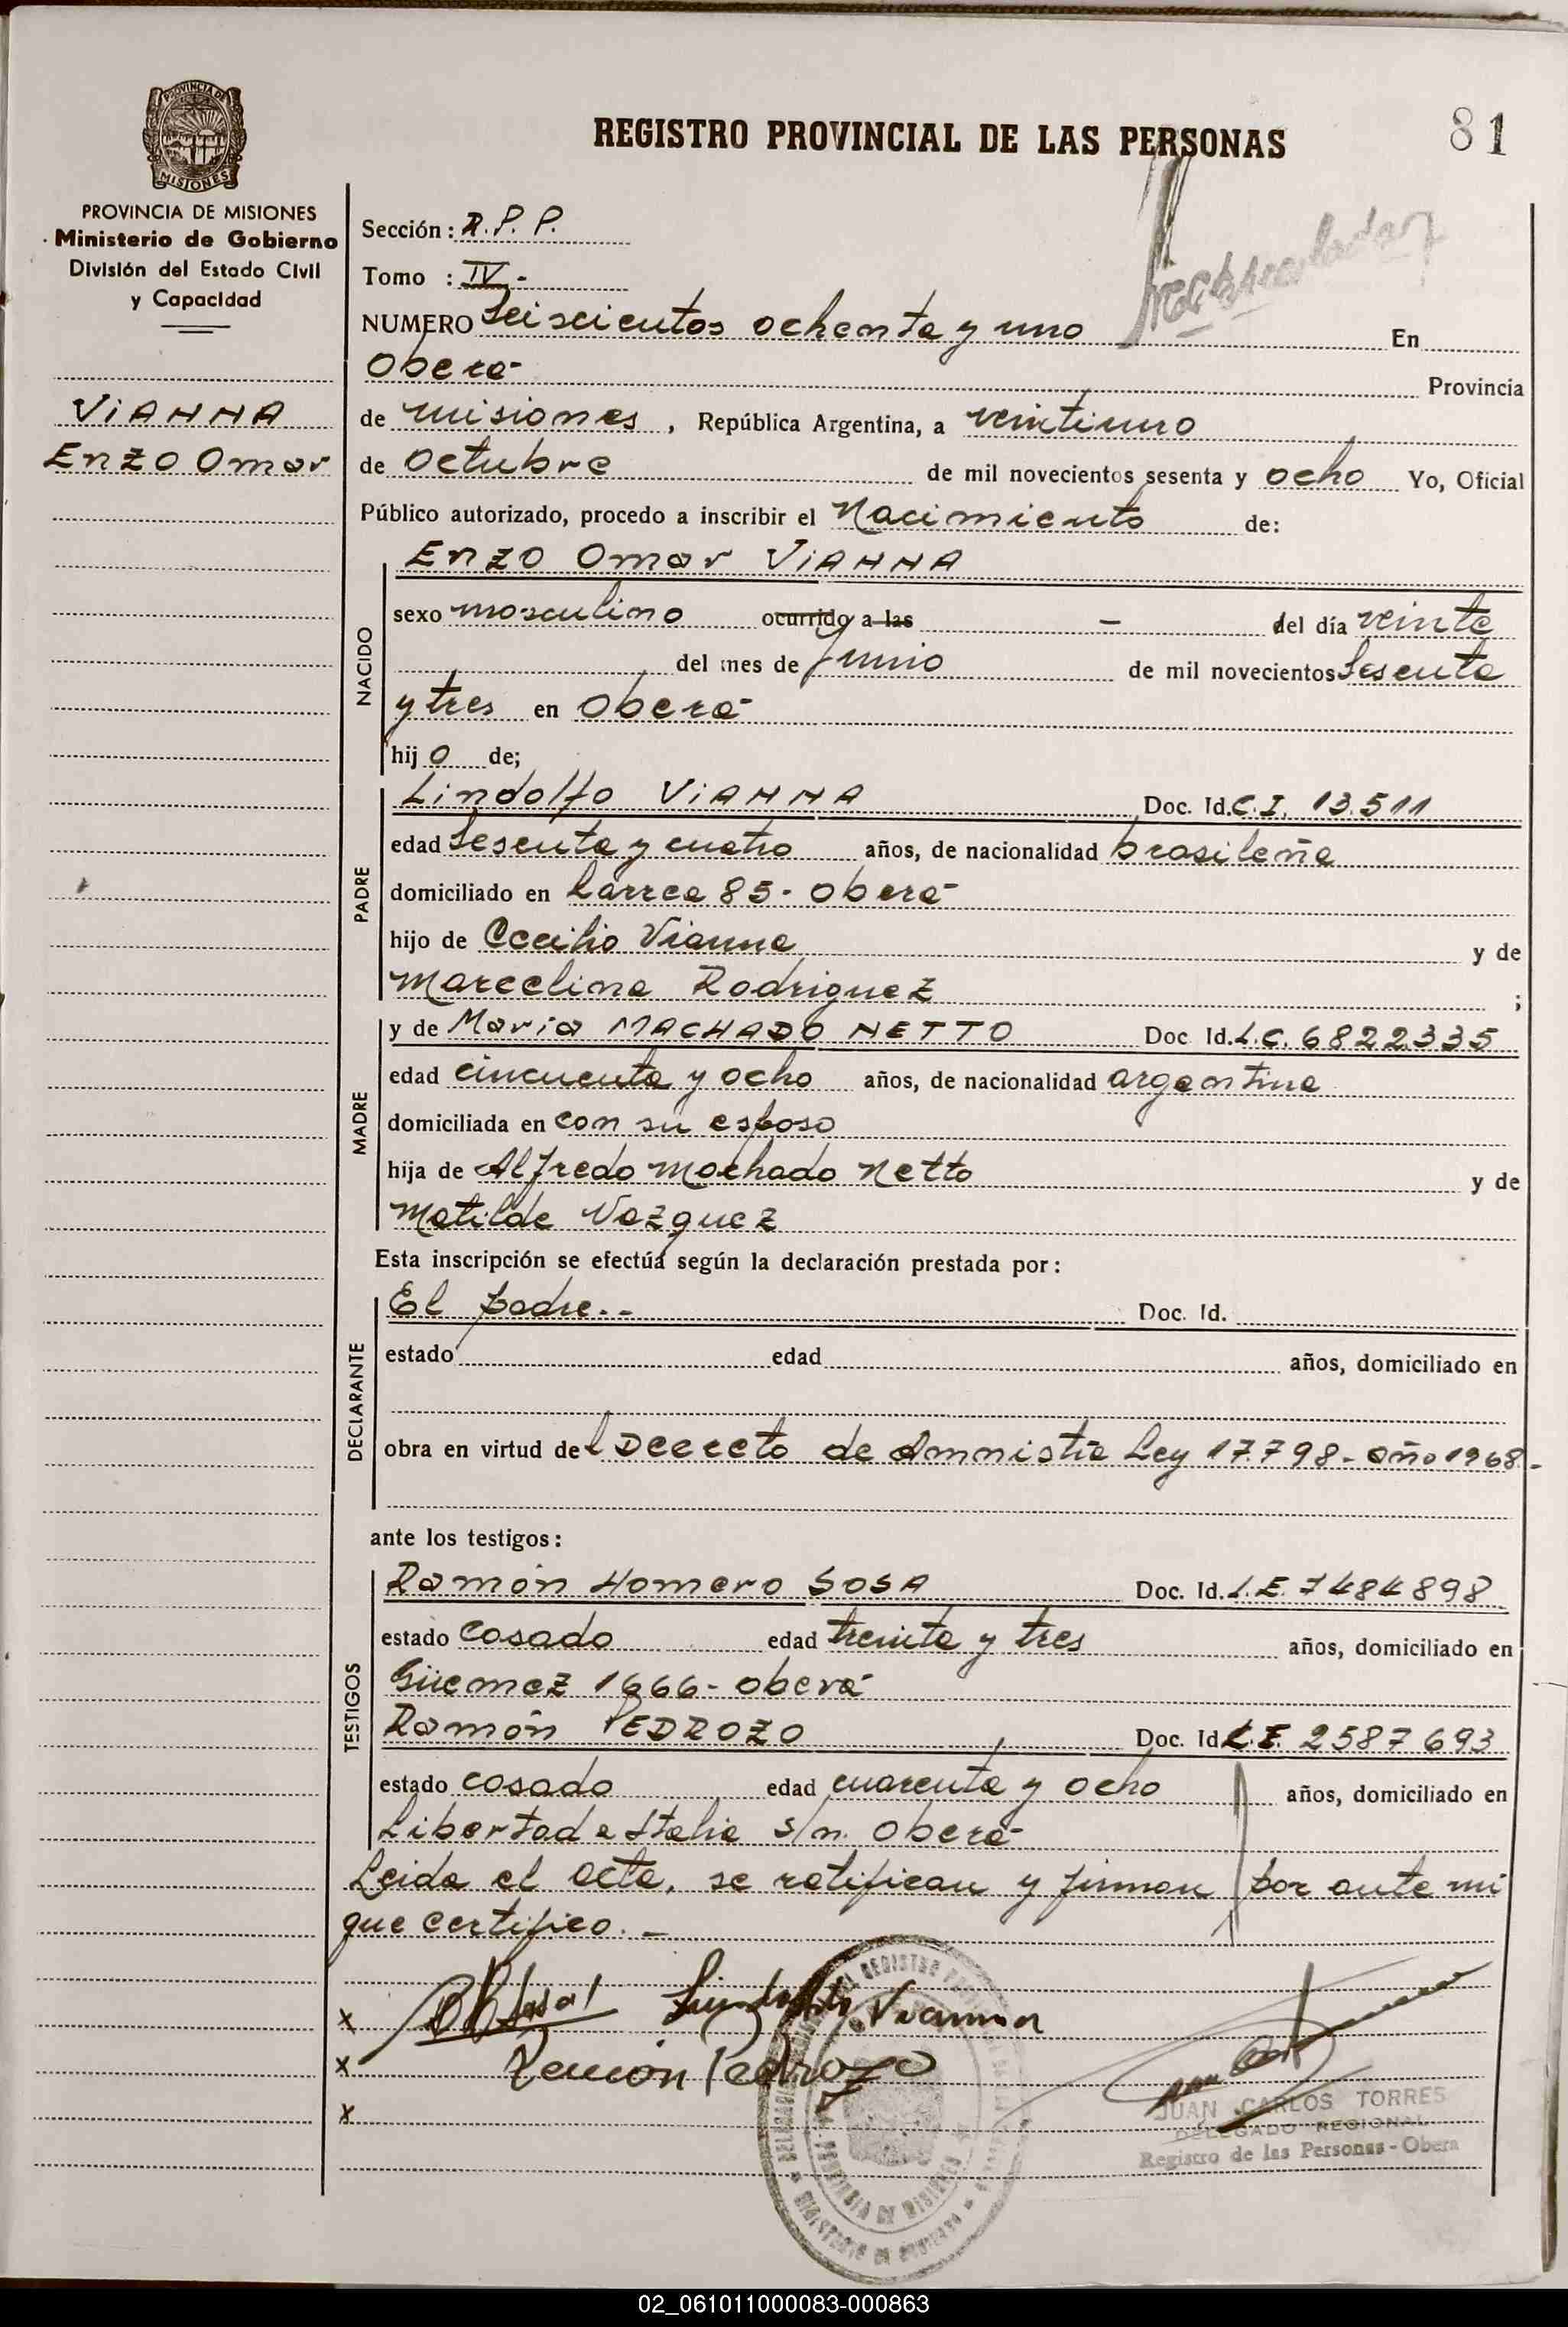 REGISTRO PROVINCIAL DE LAS PERSONAS
81
PROVINCIA DE
MISIONES
PROVINCIA DE MISIONES
Ministerio de Gobierno
División del Estado Civil
y Capacidad
VIANNA
Enzo Omar
Sección: R.P.P.
Tomo : IV-
NUMERO Seiscientos ochenta y uno En
Oberá Provincia
de Misiones, República Argentina, a veintiuno
de Octubre de mil novecientos sesenta y ocho Yo, Oficial
Público autorizado, procedo a inscribir el Nacimiento de:
NACIDO
Enzo Omar VIANNA
sexo masculino ocurrido a las - del día veinte
del mes de Junio de mil novecientos sesenta
y tres en Oberá
hij o de;
PADRE
Lindolfo VIANNA Doc. Id. C.I. 13.511
edad sesenta y cuatro años, de nacionalidad brasileña
domiciliado en Larrea 85 - Oberá
hijo de Cecilio Vianna y de
Marcelina Rodriguez ;
MADRE
y de María MACHADO NETTO Doc Id. L.C. 6822.335
edad cincuenta y ocho años, de nacionalidad argentina
domiciliada en con su esposo
hija de Alfredo Machado Netto y de
Matilde Vazquez
Esta inscripción se efectúa según la declaración prestada por:
DECLARANTE
El padre.-- Doc. Id.
estado edad años, domiciliado en
obra en virtud del Decreto de Amnistía Ley 17.798 - año 1968.-
ante los testigos:
TESTIGOS
Ramón Homero SOSA Doc. Id. L.E. 7484898
estado casado edad treinta y tres años, domiciliado en
Güemez 1666 - Oberá
Ramón PEDROZO Doc. Id. L.E. 2587693
estado casado edad cuarenta y ocho años, domiciliado en
Libertad e Italia s/n. Oberá
Leida el acta, se ratifican y firman por ante mi
que certifico. -
x Lindolfo Vianna
x Ramón Pedrozo
x
JUAN CARLOS TORRES
DELEGADO REGIONAL
Registro de las Personas - Obera
PROVINCIA DE MISIONES
MINISTERIO DE GOBIERNO
02_061011000083-000863